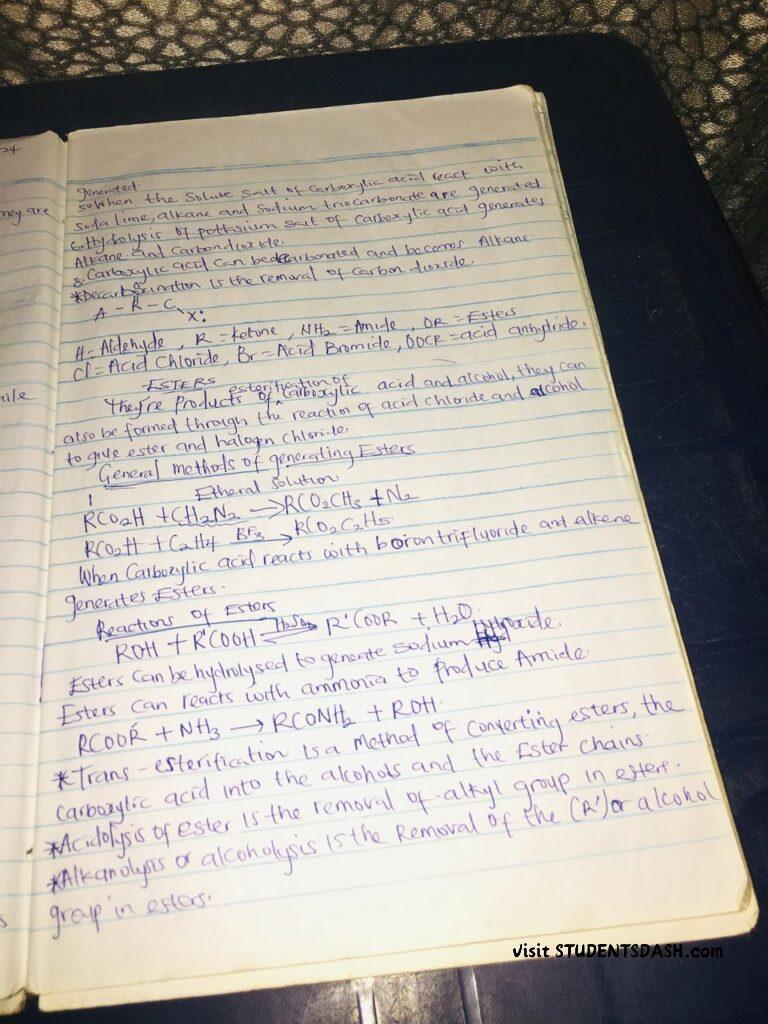 24
ney are
nile
generated.
5. When the Solute Salt of Carboxylic acid react with
soda lime, alkane and Sodium triocarbonate are generated
6. Hydrolysis of pottasium salt of Carboxylic acid generates
Alkane and Carbondioxide.
8. Carboxylic acid can be decarbonated and becomes Alkane.
*Decarboxination is the removal of Carbon dioxide.
A - R - C
X:
H = Aldehyde, R = ketone, NH2 = Amide, OR = Esters
Cl = Acid Chloride, Br = Acid Bromide, OOCR = acid anhydride.
ESTERS
esterification of
They're products of ^ Carboxylic acid and alcohol, they can
also be formed through the reaction of acid chloride and alcohol
to give ester and halogen chloride.
General methods of generating Esters
Etheral solution
RCO2H + CH2N2 → RCO2CH3 + N2
RCO2H + C2H4 BF3 → RCO2C2H5
When Carboxylic acid reacts with boron trifluoride and alkene
generates Esters.
Reactions of Esters
ROH + R'COOH ⇌ R'COOR + H2O
Esters can be hydrolysed to generate sodium Hydroxide.
Esters can reacts with ammonia to produce Amide
RCOOR' + NH3 → RCONH2 + ROH
*Trans-esterification is a method of converting esters, the
Carboxylic acid into the alcohols and the Ester chains.
*Acidolysis of ester is the removal of alkyl group in esters.
*Alkanolysis or alcoholysis is the Removal of the (R') or alcohol
group in esters.
visit STUDENTSDASH.com